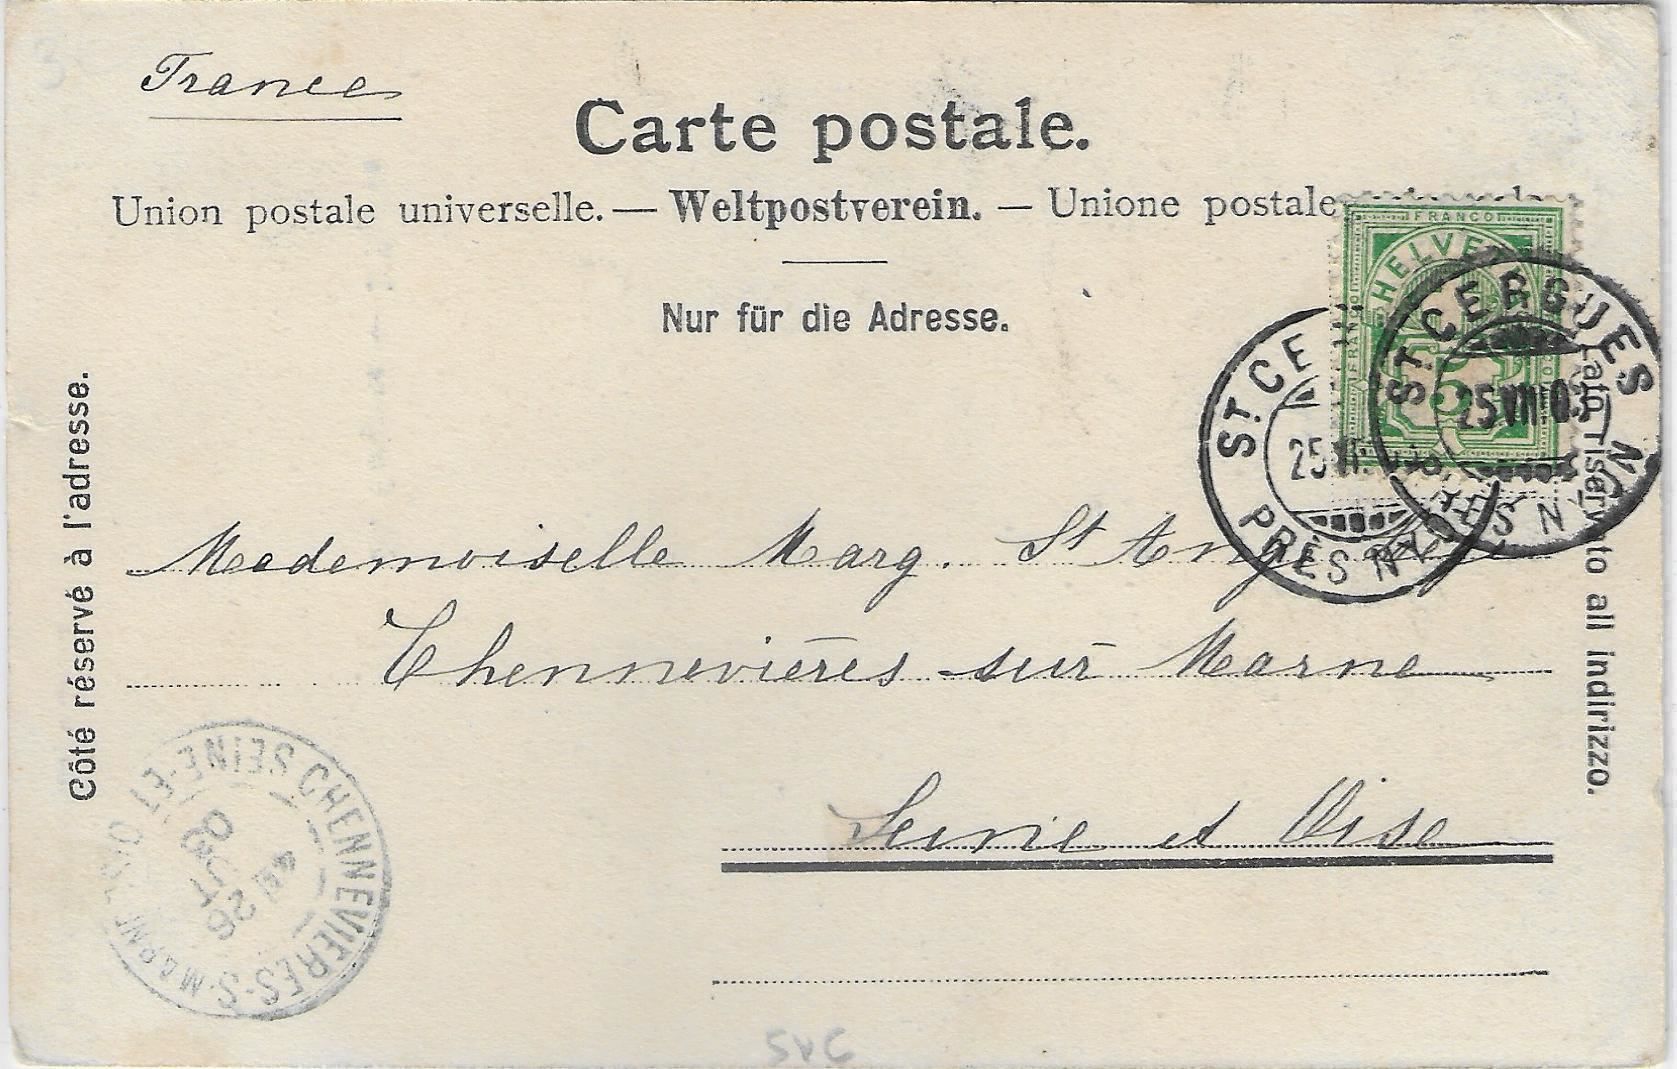 France
Carte postale.
Union postale universelle. — Weltpostverein. — Unione postale
Nur für die Adresse.
Côté réservé à l'adresse.
Lato riservato all indirizzo.
FRANCO
HELVE
FRANCO
5
ST. CERGUES
25 VIII 03
S NY
ST. CE
25 VI
PRÈS NY
Mademoiselle Marg. St Ange
Chennevières sur Marne
Seine et Oise
CHENNEVIERES-S-MARNE
SEINE-ET-OISE
26
OUT
03
SVC